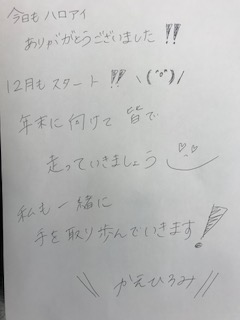 今日も ハロアイ
ありががとうございました!!
12月も スタート!! \(^o^)/
年末に 向けて 皆で
走っていきましょう
私も 一緒に
手を取り歩んでいきます!
\\ かえひろみ //